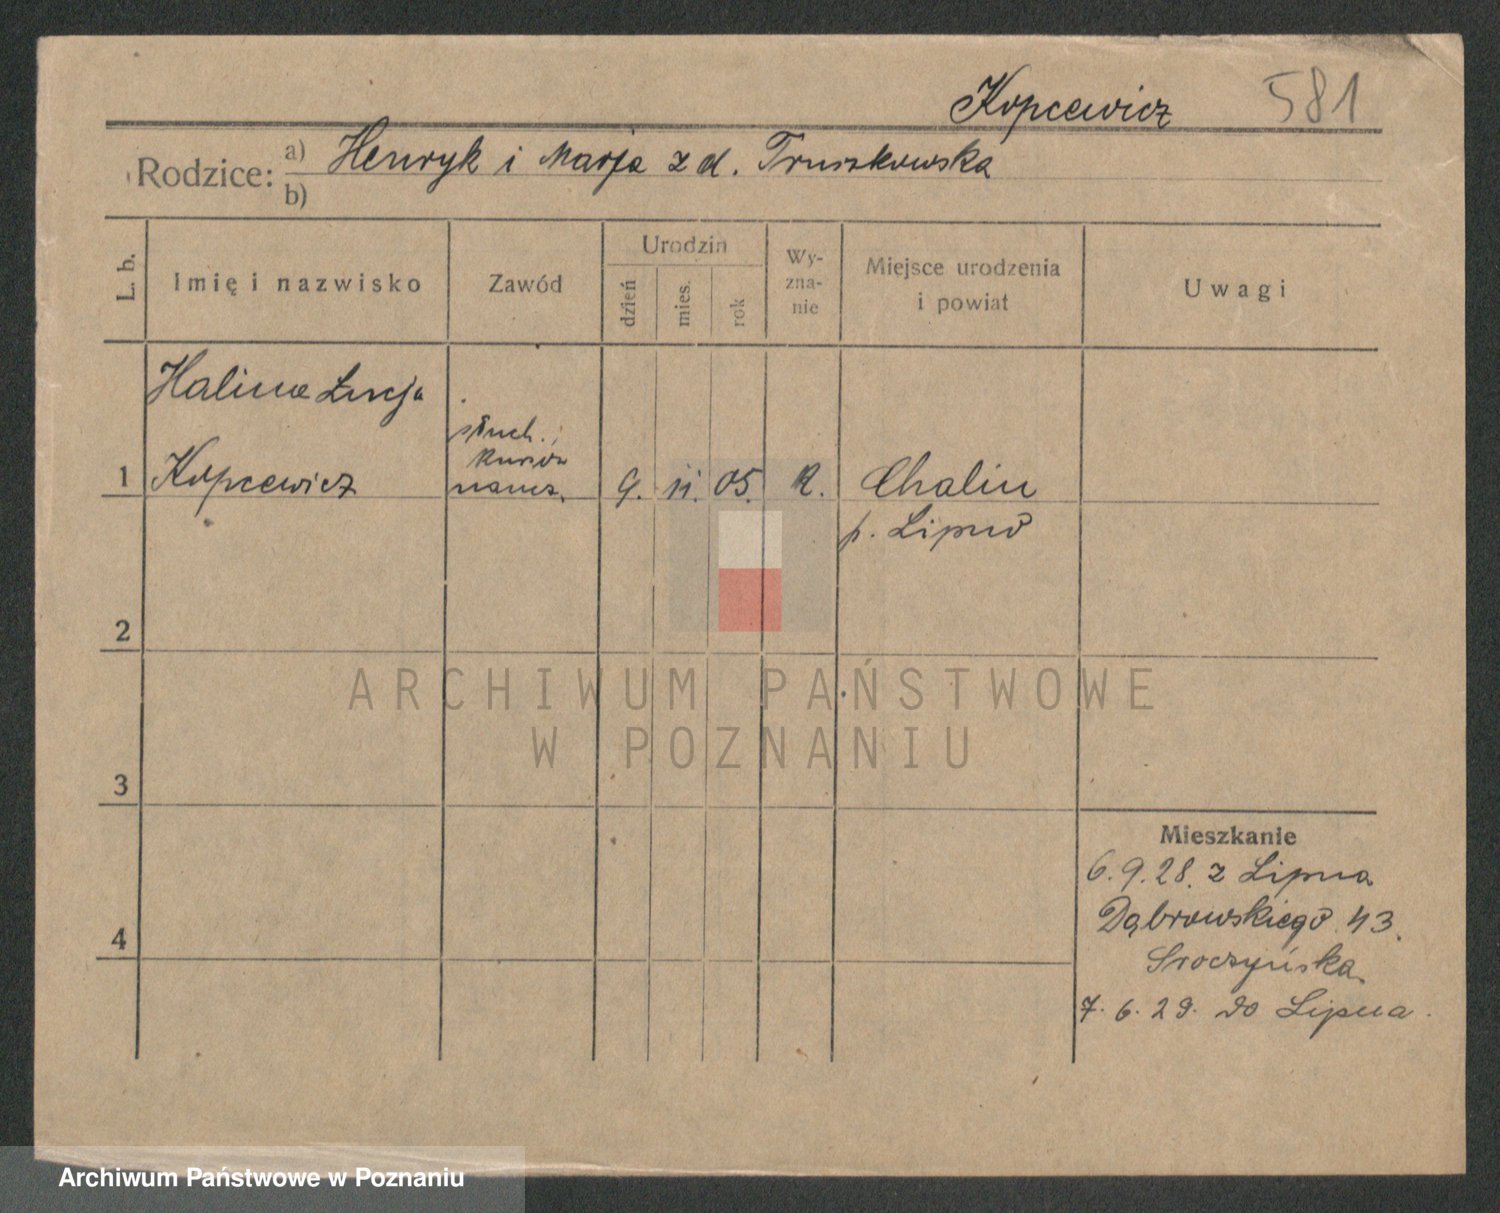 Kopcewicz 581
Rodzice: a) Henryk i Marja z d. Truszkowska
b)
L. b. Imię i nazwisko Zawód Urodzin dzień mies. rok Wy-zna-nie Miejsce urodzenia i powiat Uwagi
Halina Łucja
słuch.
kursów
1 Kopcewicz naucz. 9. 11. 05. R. Chalin
p. Lipno
2
ARCHIWUM PAŃSTWOWE
W POZNANIU
3
Mieszkanie
6.9.28. z Lipna
Dąbrowskiego 43.
4
Sroczyńska
7.6.29. do Lipna.
Archiwum Państwowe w Poznaniu